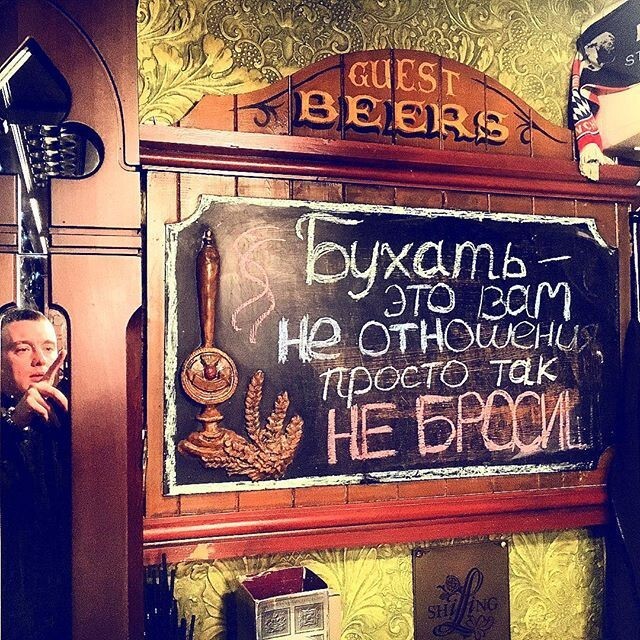 GUEST
BEERS
Бухать -
это вам
не отношения
просто так
НЕ БРОСИШ
SHILLING